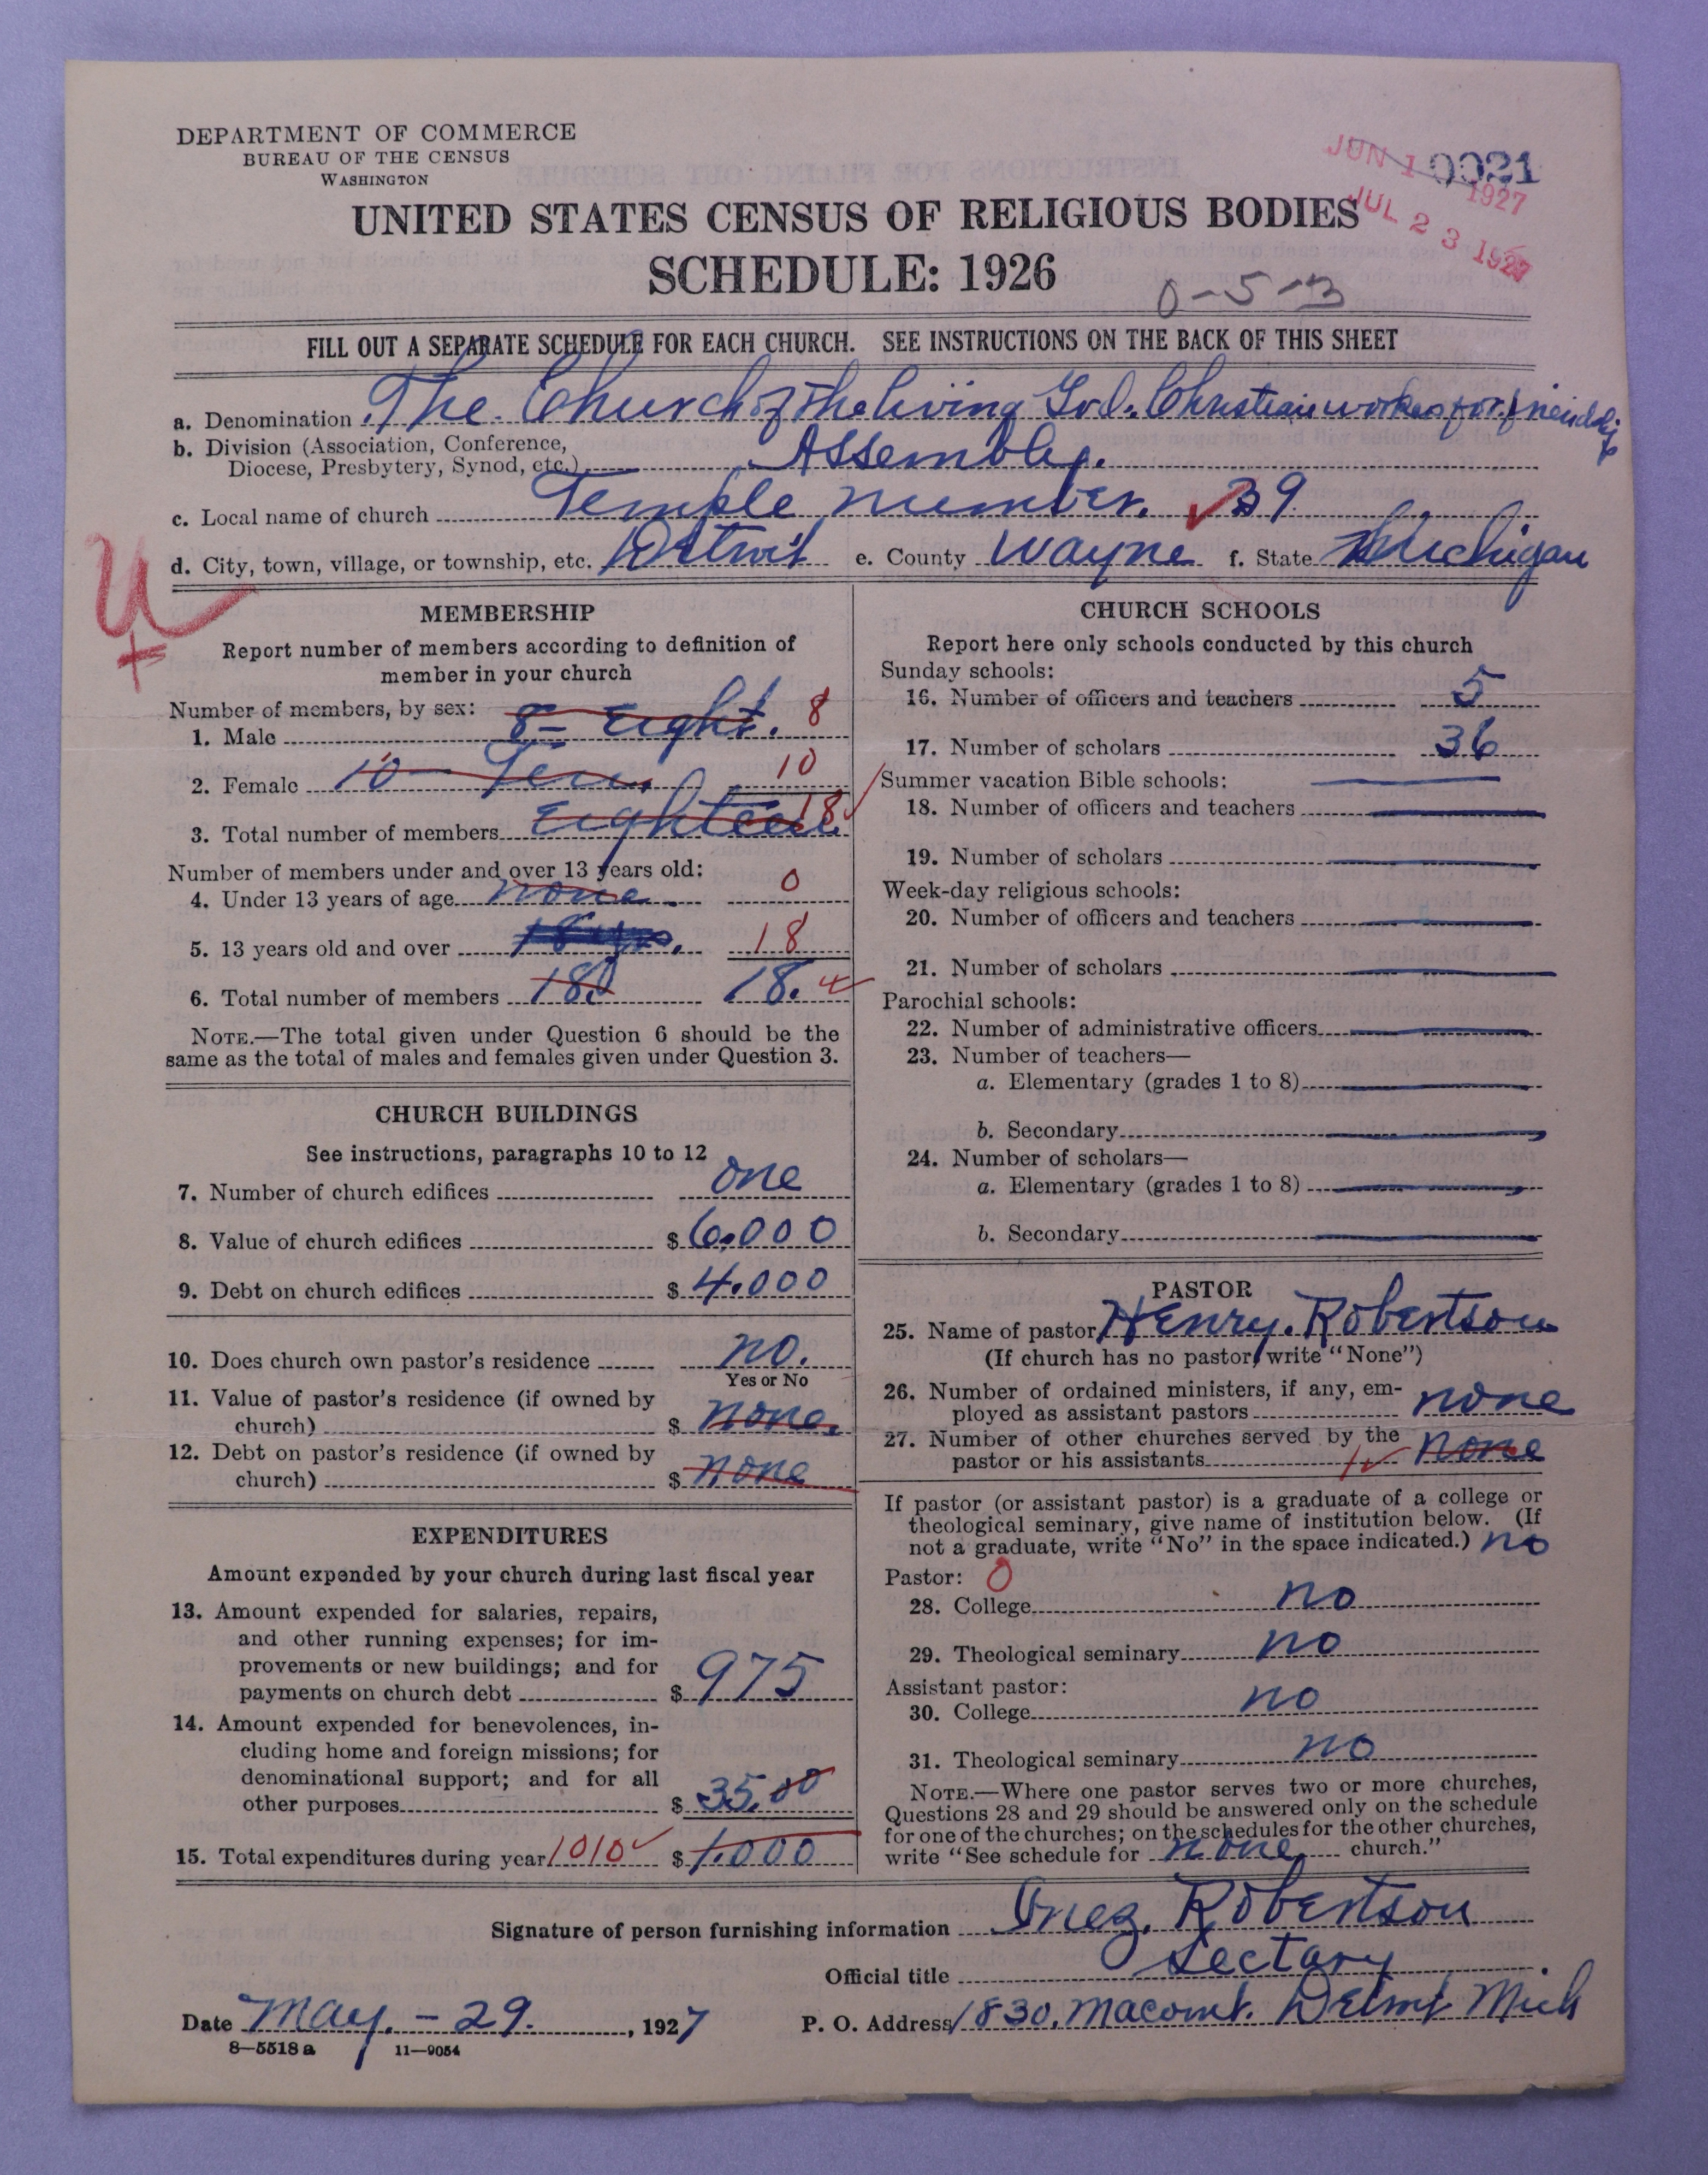 DEPARTMENT OF COMMERCE
BUREAU OF THE CENSUS
WASHINGTON
JUN 1 1927
0021
JUL 23 1927
UNITED STATES CENSUS OF RELIGIOUS BODIES
SCHEDULE: 1926
0-5-3
FILL OUT A SEPARATE SCHEDULE FOR EACH CHURCH. SEE INSTRUCTIONS ON THE BACK OF THIS SHEET
a. Denomination The Church of the Living God. Christian workes for friendship
b. Division (Association, Conference,
Diocese, Presbytery, Synod, etc.) Assembley.
c. Local name of church Temple number. 39
d. City, town, village, or township, etc. Detroit e. County Wayne f. State Michigan
U
MEMBERSHIP
Report number of members according to definition of
member in your church
Number of members, by sex:
1. Male 8 = Eight. 8
2. Female 10 — Ten. 10
3. Total number of members Eighteen. 18
Number of members under and over 13 years old:
4. Under 13 years of age none. 0
5. 13 years old and over 18 yrs. 18
6. Total number of members 18. 18.
NOTE.—The total given under Question 6 should be the
same as the total of males and females given under Question 3.
CHURCH BUILDINGS
See instructions, paragraphs 10 to 12
7. Number of church edifices one
8. Value of church edifices $ 6.000
9. Debt on church edifices $ 4.000
10. Does church own pastor's residence no.
Yes or No
11. Value of pastor's residence (if owned by
church) $ none.
12. Debt on pastor's residence (if owned by
church) $ none
EXPENDITURES
Amount expended by your church during last fiscal year
13. Amount expended for salaries, repairs,
and other running expenses; for im-
provements or new buildings; and for
payments on church debt $ 975
14. Amount expended for benevolences, in-
cluding home and foreign missions; for
denominational support; and for all
other purposes $ 35.00
15. Total expenditures during year 1010 $ 1.000
CHURCH SCHOOLS
Report here only schools conducted by this church
Sunday schools:
16. Number of officers and teachers 5
17. Number of scholars 36
Summer vacation Bible schools:
18. Number of officers and teachers
19. Number of scholars
Week-day religious schools:
20. Number of officers and teachers
21. Number of scholars
Parochial schools:
22. Number of administrative officers
23. Number of teachers—
a. Elementary (grades 1 to 8)
b. Secondary
24. Number of scholars—
a. Elementary (grades 1 to 8)
b. Secondary
PASTOR
25. Name of pastor Henry. Robertson
(If church has no pastor, write "None")
26. Number of ordained ministers, if any, em-
ployed as assistant pastors none
27. Number of other churches served by the
pastor or his assistants none
If pastor (or assistant pastor) is a graduate of a college or
theological seminary, give name of institution below. (If
not a graduate, write "No" in the space indicated.) no
Pastor: 0
28. College no
29. Theological seminary no
Assistant pastor:
30. College no
31. Theological seminary no
NOTE.—Where one pastor serves two or more churches,
Questions 28 and 29 should be answered only on the schedule
for one of the churches; on the schedules for the other churches,
write "See schedule for none church."
Signature of person furnishing information Inez. Robertson
Official title Sectary
Date May. - 29. , 1927 P. O. Address 1830. Macomb. Detroit Mich
8—5518 a 11—9054